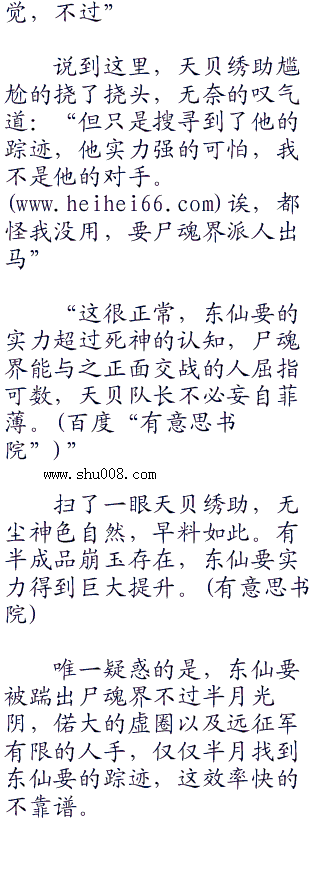 觉，不过”
说到这里，天贝绣助尴
尬的挠了挠头，无奈的叹气
道：“但只是搜寻到了他的
踪迹，他实力强的可怕，我
不是他的对手。
(www.heihei66.com)诶，都
怪我没用，要尸魂界派人出
马”
“这很正常，东仙要的
实力超过死神的认知，尸魂
界能与之正面交战的人屈指
可数，天贝队长不必妄自菲
薄。(百度“有意思书
院”)”
www.shu008.com
扫了一眼天贝绣助，无
尘神色自然，早料如此。有
半成品崩玉存在，东仙要实
力得到巨大提升。(有意思书
院)
唯一疑惑的是，东仙要
被踹出尸魂界不过半月光
阴，偌大的虚圈以及远征军
有限的人手，仅仅半月找到
东仙要的踪迹，这效率快的
不靠谱。